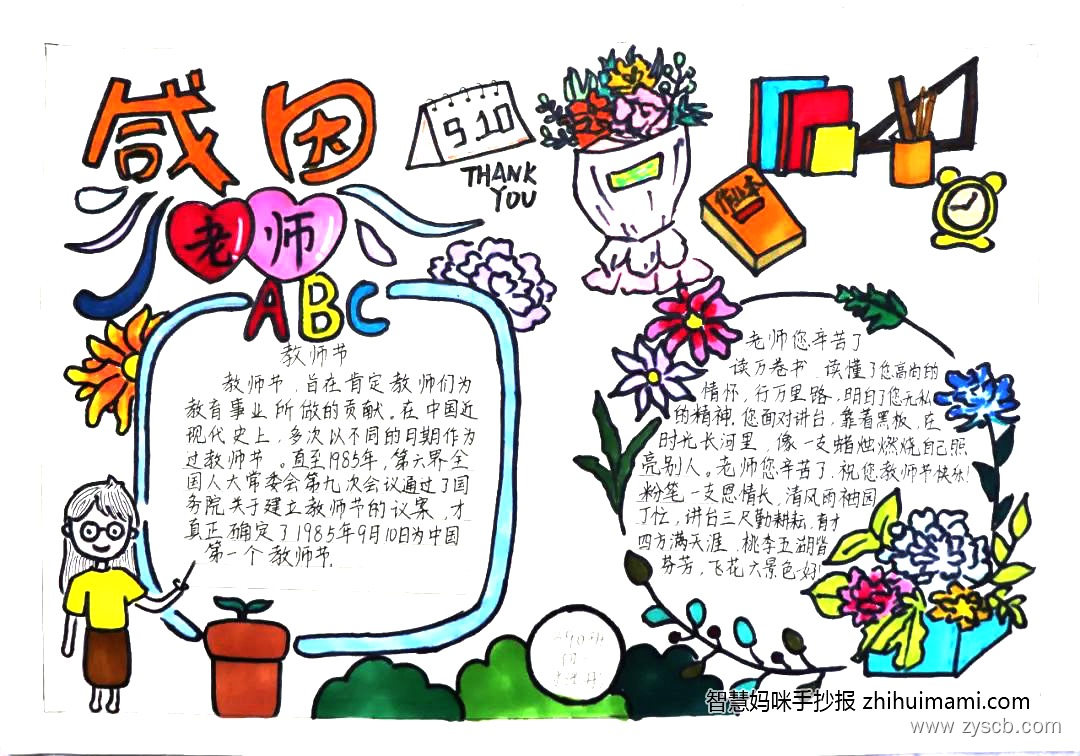 感恩
老师
9.10
THANK
YOU
作业本
ABC
教师节
教师节,旨在肯定教师们为
教育事业所做的贡献。在中国近
现代史上,多次以不同的日期作为
过教师节。直至1985年,第六界全
国人大常委会第九次会议通过了国
务院关于建立教师节的议案,才
真正确定了1985年9月10日为中国
第一个教师节.
老师您辛苦了
读万卷书,读懂了您高尚的
情怀,行万里路,明白了您无私
的精神.您面对讲台,靠着黑板,在
时光长河里,像一支蜡烛燃烧自己照
亮别人。老师您辛苦了,祝您教师节快乐!
粉笔一支恩情长,清风雨袖园
丁忙,讲台三尺勤耕耘,育才
四方满天涯,桃李五湖皆
芬芳,飞花六景色好!
智慧妈咪手抄报 zhihuimami.com
www.zyscb.com